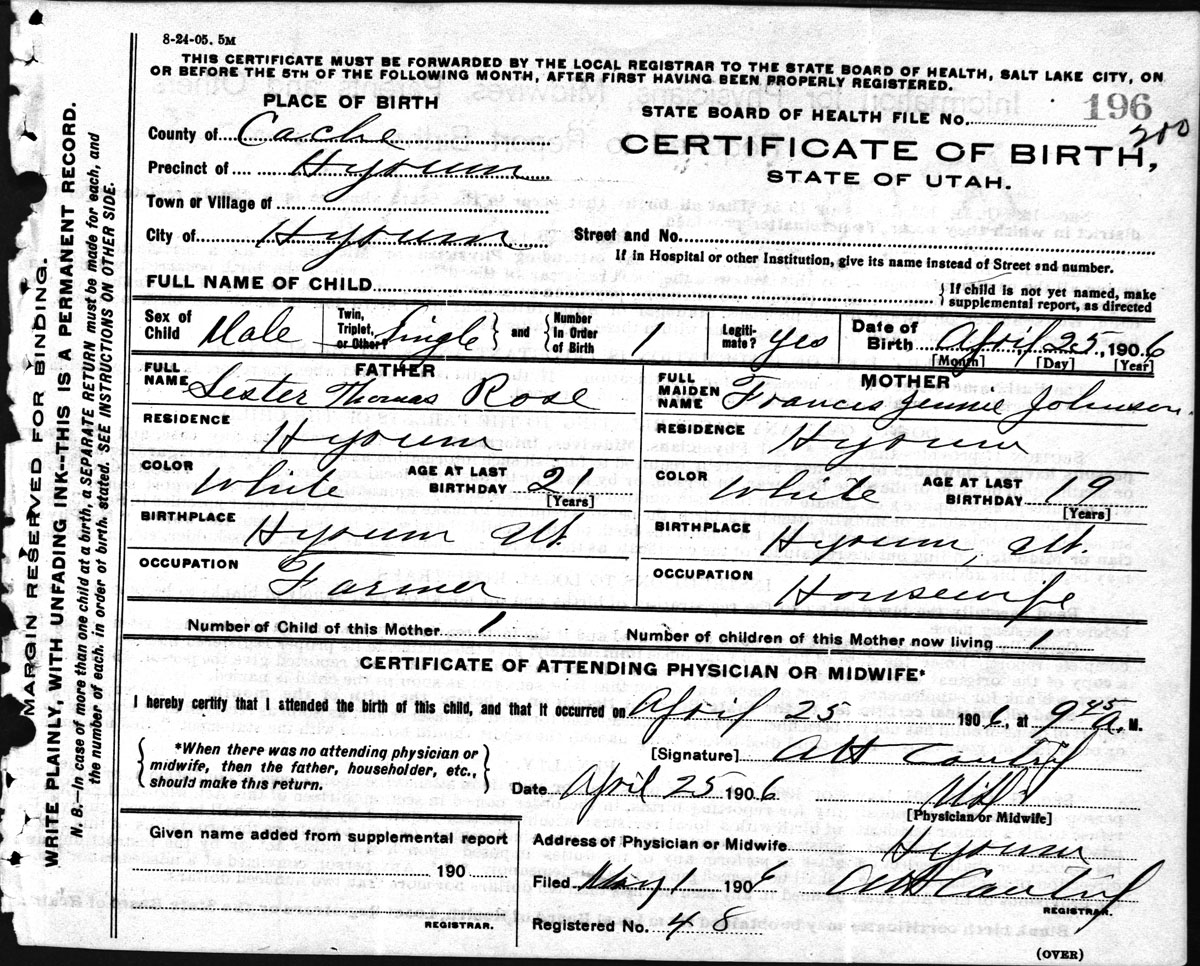 8-24-05. 5M
THIS CERTIFICATE MUST BE FORWARDED BY THE LOCAL REGISTRAR TO THE STATE BOARD OF HEALTH, SALT LAKE CITY, ON
OR BEFORE THE 5TH OF THE FOLLOWING MONTH, AFTER FIRST HAVING BEEN PROPERLY REGISTERED.
PLACE OF BIRTH
STATE BOARD OF HEALTH FILE NO. 196
200
County of Cache
CERTIFICATE OF BIRTH,
STATE OF UTAH.
Precinct of Hyrum
Town or Village of
City of Hyrum
Street and No.
If in Hospital or other Institution, give its name instead of Street and number.
FULL NAME OF CHILD
If child is not yet named, make
supplemental report, as directed
Sex of Child Male
Twin, Triplet, or Other? Single and Number in Order of Birth 1
Legiti-mate? yes
Date of Birth April 25, 1906
[Month] [Day] [Year]
FATHER
FULL NAME Lester Thomas Rose
RESIDENCE Hyrum
COLOR White AGE AT LAST BIRTHDAY 21
[Years]
BIRTHPLACE Hyrum Ut.
OCCUPATION Farmer
MOTHER
FULL MAIDEN NAME Francis Jennie Johnson
RESIDENCE Hyrum
COLOR White AGE AT LAST BIRTHDAY 19
[Years]
BIRTHPLACE Hyrum, Ut.
OCCUPATION Housewife
Number of Child of this Mother 1
Number of children of this Mother now living 1
CERTIFICATE OF ATTENDING PHYSICIAN OR MIDWIFE*
I hereby certify that I attended the birth of this child, and that it occurred on April 25 1906, at 9 45 A. M.
*When there was no attending physician or
midwife, then the father, householder, etc.,
should make this return.
[Signature]
Date April 25 1906
[Physician or Midwife]
Given name added from supplemental report
190
REGISTRAR.
Address of Physician or Midwife Hyrum
Filed May 1 1906
REGISTRAR.
Registered No. 48
(OVER)
MARGIN RESERVED FOR BINDING.
WRITE PLAINLY, WITH UNFADING INK—THIS IS A PERMANENT RECORD.
N. B.—In case of more than one child at a birth, a SEPARATE RETURN must be made for each, and
the number of each, in order of birth, stated. SEE INSTRUCTIONS ON OTHER SIDE.